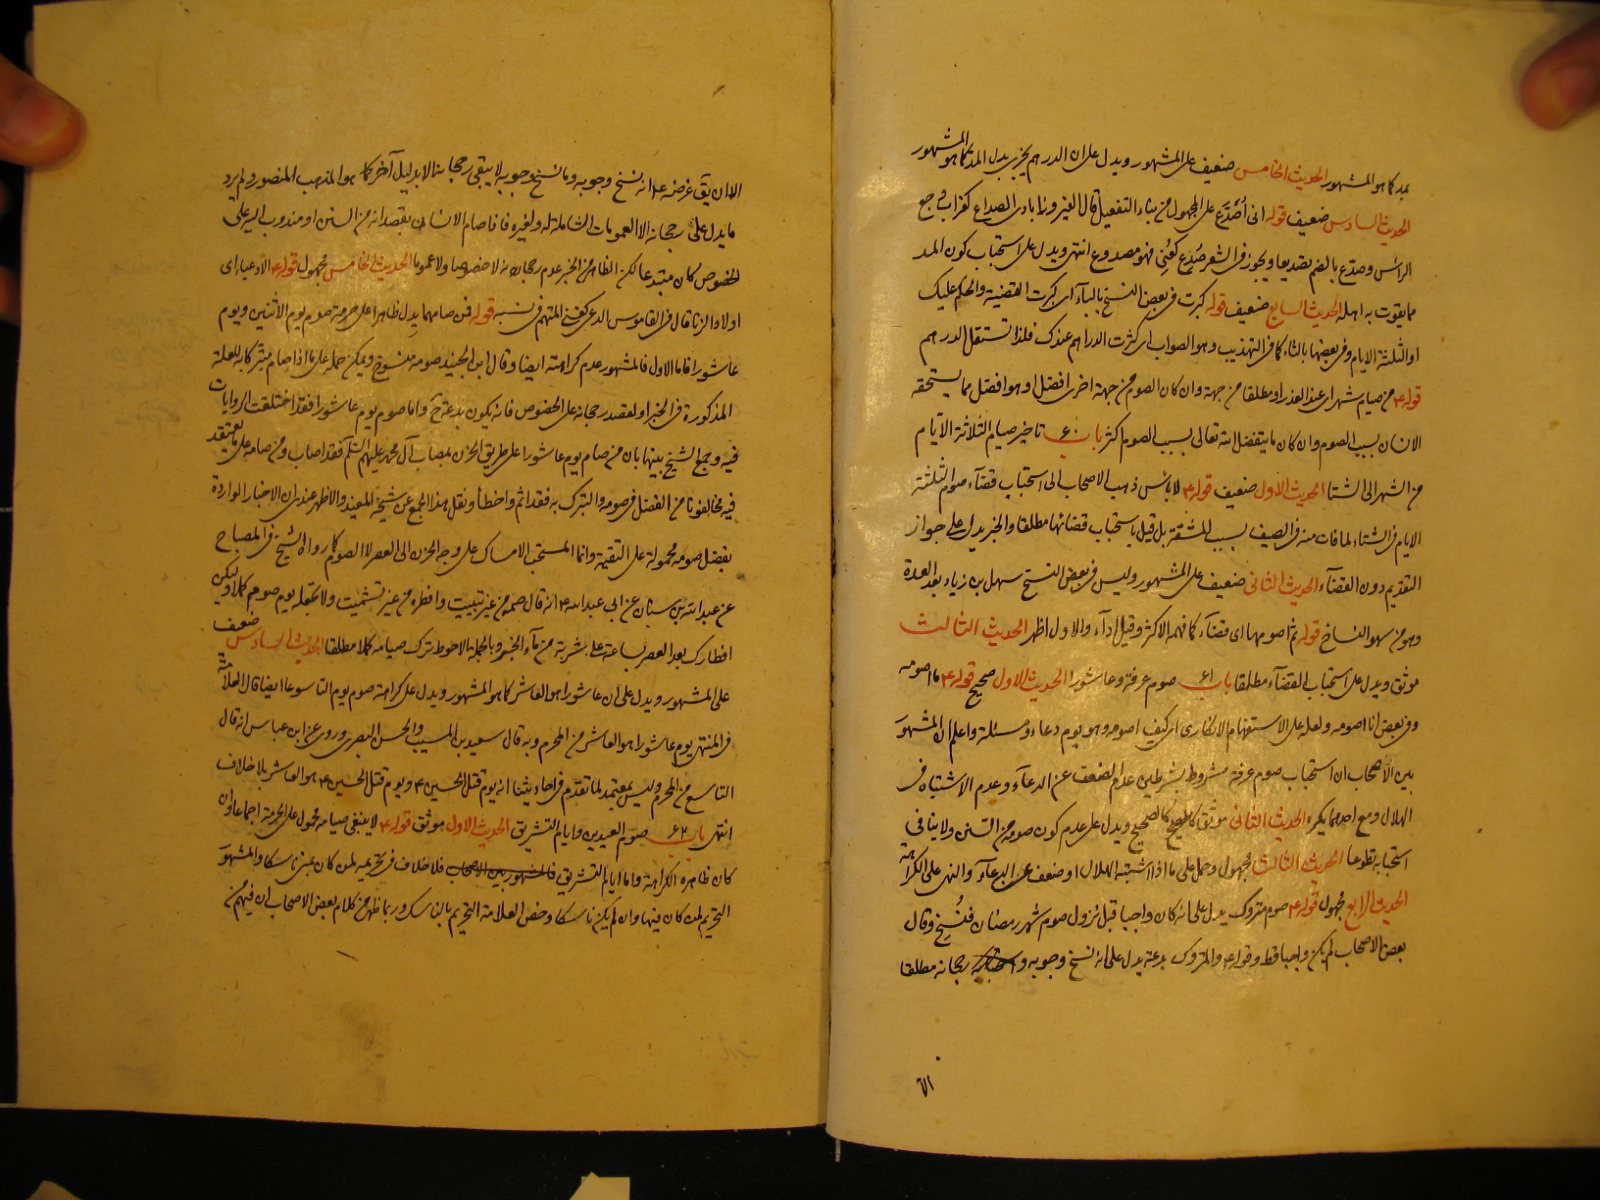 بمد كما هو المشهور الحديث الخامس ضعيف على المشهور ويدل على ان الدرهم يجزى بدل المد كما هو المشهور
الحديث السادس ضعيف قوله انى اُصَدَّع على المجهول من بناء التفعيل قال الفيروزابادى الصداع كغراب وجع
الراس وصدّع بالضم تصديعا ويجوز فى الشعر صُدِع كعُنِى فهو مصدوع انتهى ويدل على استحباب كون المد
مما يقوت به اهله الحديث السابع ضعيف قوله كبرت فى بعض النسخ بالباء اى كبرت القضية والحكم عليك
او الثلثة الايام وفى بعضها بالثاء كما فى التهذيب وهو الصواب اى كثرت الدراهم عندك فلذا تستقل الدرهم
قوله ع من صيام شهر اى عند العذر او مطلقا من جهة وان كان الصوم من جهة اخرى افضل او هو افضل مما يستحقه
الانسان بسبب الصوم وان كان ما يتفضل الله تعالى بسبب الصوم اكثر باب ٦٠ تاخير صيام الثلاثة الايام
من الشهر الى الشتا الحديث الاول ضعيف قوله ع لا باس ذهب الاصحاب الى استحباب قضاء صوم الثلثة
الايام فى الشتاء لما فات منه فى الصيف بسبب المشقة بل قيل باستحباب قضائها مطلقا والخبر يدل على جواز
التقديم دون القضاء الحديث الثانى ضعيف على المشهور وليس فى بعض النسخ سهل بن زياد بعد العدة
وهو من سهو النساخ قوله ثم اصومها اى قضاء كما فهمه الاكثر وقيل اداء والاول اظهر الحديث الثالث
موثق ويدل على استحباب القضاء مطلقا باب ٦١ صوم عرفة وعاشورا الحديث الاول صحيح قوله ع ما اصومه
وفى بعض انا اصومه ولعله على الاستفهام الانكارى اى كيف اصومه وهو يوم دعاء ومسئلة واعلم ان المشهور
بين الاصحاب ان استحباب صوم عرفة مشروط بشرطين عدم الضعف عن الدعاء وعدم الاشتباه فى
الهلال ومع احدهما يكره الحديث الثانى موثق كالصحيح كالصحيح ويدل على عدم كون صومه من السنن ولا ينافى
استحبابه تطوعا الحديث الثالث مجهول وحمل على ما اذا اشتبه الهلال او ضعف عن الدعاء والنهى على الكراهة
الحديث الرابع مجهول قوله ع صوم متروك يدل على انه كان واجبا قبل نزول صوم شهر رمضان فنُسِخ وقال
بعض الاصحاب لم يكن واجبا قط وقوله ع والمتروك بدعة يدل على انه نسخ وجوبه و رجحانه مطلقا
الا
الا ان يقٓ غرضه ع انه نسخ وجوبه وما نسخ وجوبه لا يبقى رجحانه الا بدليل آخر كما هو المذهب المنصور ولم يرد
ما يدل على رجحانه الا العمومات الشاملة له ولغيره فاذا صام الانسان بقصد انه من السنن او مندوب اليه على
الخصوص كان مبتدعا لكن الظاهر من الخبر عدم رجحانه لا خصوصا ولا عموما الحديث الخامس مجهول قوله ع الادعياء اى
اولاد الزنا قال فى القاموس الدعى كغنى المتهم فى نسبه قوله فمن صامهما يدل ظاهرا على حرمة صوم يوم الاثنين ويوم
عاشورا فاما الاول فالمشهور عدم كراهته ايضا وقال ابن الجنيد صومه منسوخ ويمكن حمله على ما اذا صام متبركا به للعلة
المذكورة فى الخبر او لقصد رجحانه على الخصوص فانه يكون بدعة ح واما صوم يوم عاشورا فقد اختلفت الروايات
فيه وجمع الشيخ بينها بان من صام يوم عاشورا على طريق الحزن بمصاب آل محمد عليهم السلم فقد اصاب ومن صامه على ما يعتقد
فيه مخالفونا من الفضل فى صومه والتبرك به فقد اثم واخطأ ونقل هذا الجمع عن شيخه المفيد والاظهر عندى ان الاخبار الواردة
بفضل صومه محمولة على التقية وانما المستحب الامساك على وجه الحزن الى العصر لا الصوم كما رواه الشيخ فى المصباح
عن عبدالله بن سنان عن ابى عبدالله ع انه قال صمه من غير تبييت وافطره من غير تشميت ولا تجعله يوم صوم كملا وليكن
افطارك بعد العصر بساعة على شربة من ماء الخبر وبالجملة الاحوط ترك صيامه كملا مطلقا الحديث السادس ضعيف
على المشهور ويدل على ان عاشورا هو العاشر كما هو المشهور ويدل على كراهة صوم يوم التاسوعا ايضا قال العلامة
فى المنتهى يوم عاشورا هو العاشر من المحرم وبه قال سعيد بن المسيب والحسن البصرى وروى عن ابن عباس انه قال
التاسع من المحرم وليس بمعتمد لما تقدم فى احاديثنا انه يوم قتل الحسين ع ويوم قتل الحسين ع هو العاشر بلا خلاف
انتهى باب ٦٢ صوم العيدين وايام التشريق الحديث الاول موثق قوله ع لا ينبغى صيامه محمول على الحرمة اجماعا وان
كان ظاهره الكراهة واما ايام التشريق فالمشهور بين الاصحاب فلا خلاف فى تحريمه لمن كان بمنى ناسكا والمشهور
التحريم لمن كان فيها وان لم يكن ناسكا وخص العلامة التحريم بالناسك وربما ظهر من كلام بعض الاصحاب ان فيهم من